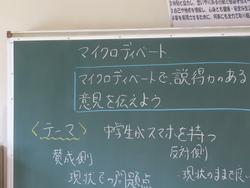 マイクロディベート
マイクロディベートで、説得力のある
意見を伝えよう
<テーマ> 中学生がスマホを持つ
賛成側 反対側
現状での問題点 ・現状のままで良い